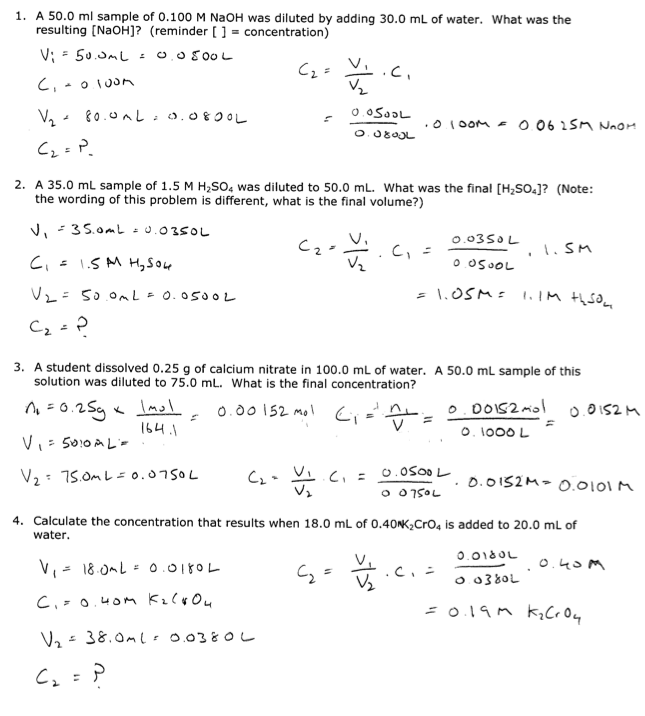 1. A 50.0 ml sample of 0.100 M NaOH was diluted by adding 30.0 mL of water. What was the
resulting [NaOH]? (reminder [ ] = concentration)
V₁ = 50.0mL = 0.0500L
C₁ = 0.100M
V₂ = 80.0mL = 0.0800L
C₂ = ?
C₂ = V₁/V₂ · C₁
= 0.0500L/0.0800L · 0.100M = 0.0625M NaOH
2. A 35.0 mL sample of 1.5 M H₂SO₄ was diluted to 50.0 mL. What was the final [H₂SO₄]? (Note:
the wording of this problem is different, what is the final volume?)
V₁ = 35.0mL = 0.0350L
C₁ = 1.5M H₂SO₄
V₂ = 50.0mL = 0.0500L
C₂ = ?
C₂ = V₁/V₂ · C₁ = 0.0350L/0.0500L · 1.5M
= 1.05M = 1.1M H₂SO₄
3. A student dissolved 0.25 g of calcium nitrate in 100.0 mL of water. A 50.0 mL sample of this
solution was diluted to 75.0 mL. What is the final concentration?
n₁ = 0.25g x 1mol/164.1 = 0.00152 mol
C₁ = n₁/V = 0.00152mol/0.1000L = 0.0152M
V₁ = 50.0mL =
V₂ = 75.0mL = 0.0750L
C₂ = V₁/V₂ · C₁ = 0.0500L/0.0750L · 0.0152M = 0.0101M
4. Calculate the concentration that results when 18.0 mL of 0.40M K₂CrO₄ is added to 20.0 mL of
water.
V₁ = 18.0mL = 0.0180L
C₁ = 0.40M K₂CrO₄
V₂ = 38.0mL = 0.0380L
C₂ = ?
C₂ = V₁/V₂ · C₁ = 0.0180L/0.0380L · 0.40M
= 0.19M K₂CrO₄